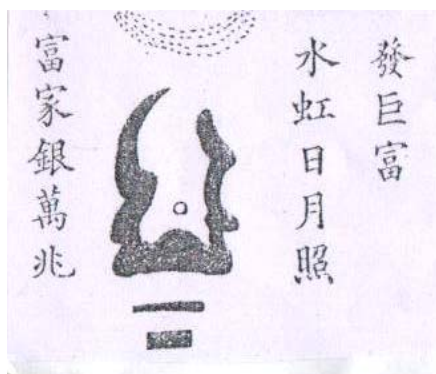 發巨富
水虹日月照
富家銀萬兆